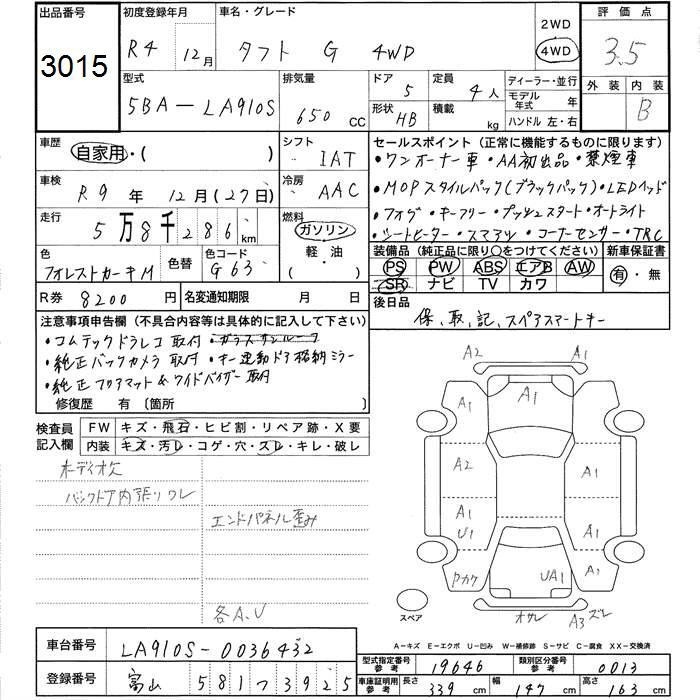 出品番号
3015
初度登録年月
R4 12月
車名・グレード
タフト G 4WD
2WD
4WD
評価点
3.5
外装 内装
B
型式
5BA-LA910S
排気量
650 CC
ドア
5
定員
4人
形状
HB
積載
kg
ディーラー・並行
モデル年式 年
ハンドル 左・右
車歴
自家用・( )
シフト
IAT
車検
R9年 12月(27日)
冷房
AAC
走行
5万8千286km
燃料
ガソリン
軽・油
( )
色
フォレストカーキM
色替
色コード
G63
R券 8200円
名変通知期限 月 日
セールスポイント(正常に機能するものに限ります)
・ワンオーナー車・AA初出品・禁煙車
・MOPスタイルパック(ブラックパック)・LEDヘッド
・フォグ・キーフリー・プッシュスタート・オートライト
・シートヒーター・スマアシ・コーナーセンサー・TRC
装備品(純正品に限り○をつけてください)
新車保証書
PS PW ABS エアB AW
SR ナビ TV カワ
有・無
後日品
保、取、記、スペアスマートキー
注意事項申告欄(不具合内容等は具体的に記入して下さい)
・コムテックドラレコ取付・ガラスサンルーフ
・純正バックカメラ取付・キー連動ドア格納ミラー
・純正フロアマット&ワイドバイザー取付
修復歴 有〔箇所 〕
検査員記入欄
FW キズ・飛石・ヒビ割・リペア跡・X要
内装 キズ・汚レ・コゲ・穴・スレ・キレ・破レ
ボディ小欠
バックドア内張りワレ
エンドパネル歪み
各A.U
A2
A1
A1
A1
A2
A1
A1
U1
A1
ワカケ
UA1
A1
オサレ
A3ズレ
スペア
A-キズ E-エクボ U-凹み W-補修跡 S-サビ C-腐食 XX-交換済
車台番号
LA910S-0036432
登録番号
富山 581つ3925
型式指定番号 参考
19646
類別区分番号 参考
0013
車庫証明用 参考
長さ 339cm
幅 147cm
高さ 163cm